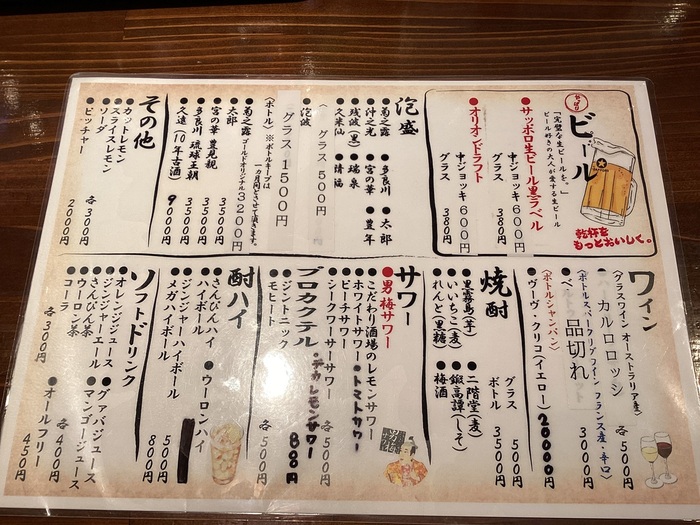 やっぱり
ビール
「完璧な生ビールを。」
ビール好きの大人が愛する生ビール
乾杯を
もっとおいしく。
●サッポロ生ビール黒ラベル
中ジョッキ 600円
グラス 380円
●オリオンドラフト
中ジョッキ 600円
グラス 380円
泡盛
●菊之露 ●多良川 ●太郎
●沖之光 ●宮の華 ●豊年
●残波(黒) ●瑞泉
●久米仙 ●請福
グラス 500円
●泡波
グラス 1500円
〈ボトル〉※ボトルキープは
一カ月間とさせて頂きます。
●菊之露 ゴールドオリジナル 3200円
●太郎 3500円
●宮の華 豊見親 3500円
●多良川 琉球王朝 3500円
●久遠(10年古酒) 9000円
その他
●カットレモン
●スライスレモン
●ソーダ
各300円
●ピッチャー 2000円
ワイン
(グラスワイン オーストラリア産)
カルロロッシ 各500円
(ボトルスパークリングワイン フランス産・辛口)
品切れ 3000円
(ボトルシャンパン)
●ヴーヴ・クリコ(イエロー) 20000円
焼酎
グラス 500円
ボトル 3500円
●黒霧島(芋) ●二階堂(麦)
●いいちこ(麦) ●鍛高譚(しそ)
●れんと(黒糖) ●梅酒
サワー
●男梅サワー
●こだわり酒場のレモンサワー
●ホワイトサワー ●トマトサワー
●ピーチサワー
●シークワーサーサワー
各500円
・デカレモンサワー 800円
プロカクテル
●ジントニック
●モヒート
各500円
酎ハイ
●さんぴんハイ ●ウーロンハイ
●ハイボール
●ジンジャーハイボール 500円
●メガハイボール 800円
ソフトドリンク
●オレンジジュース ●グァバジュース
●ジンジャーエール ●マンゴージュース
●さんぴん茶
●ウーロン茶
●コーラ
各400円
各300円
●オールフリー 450円